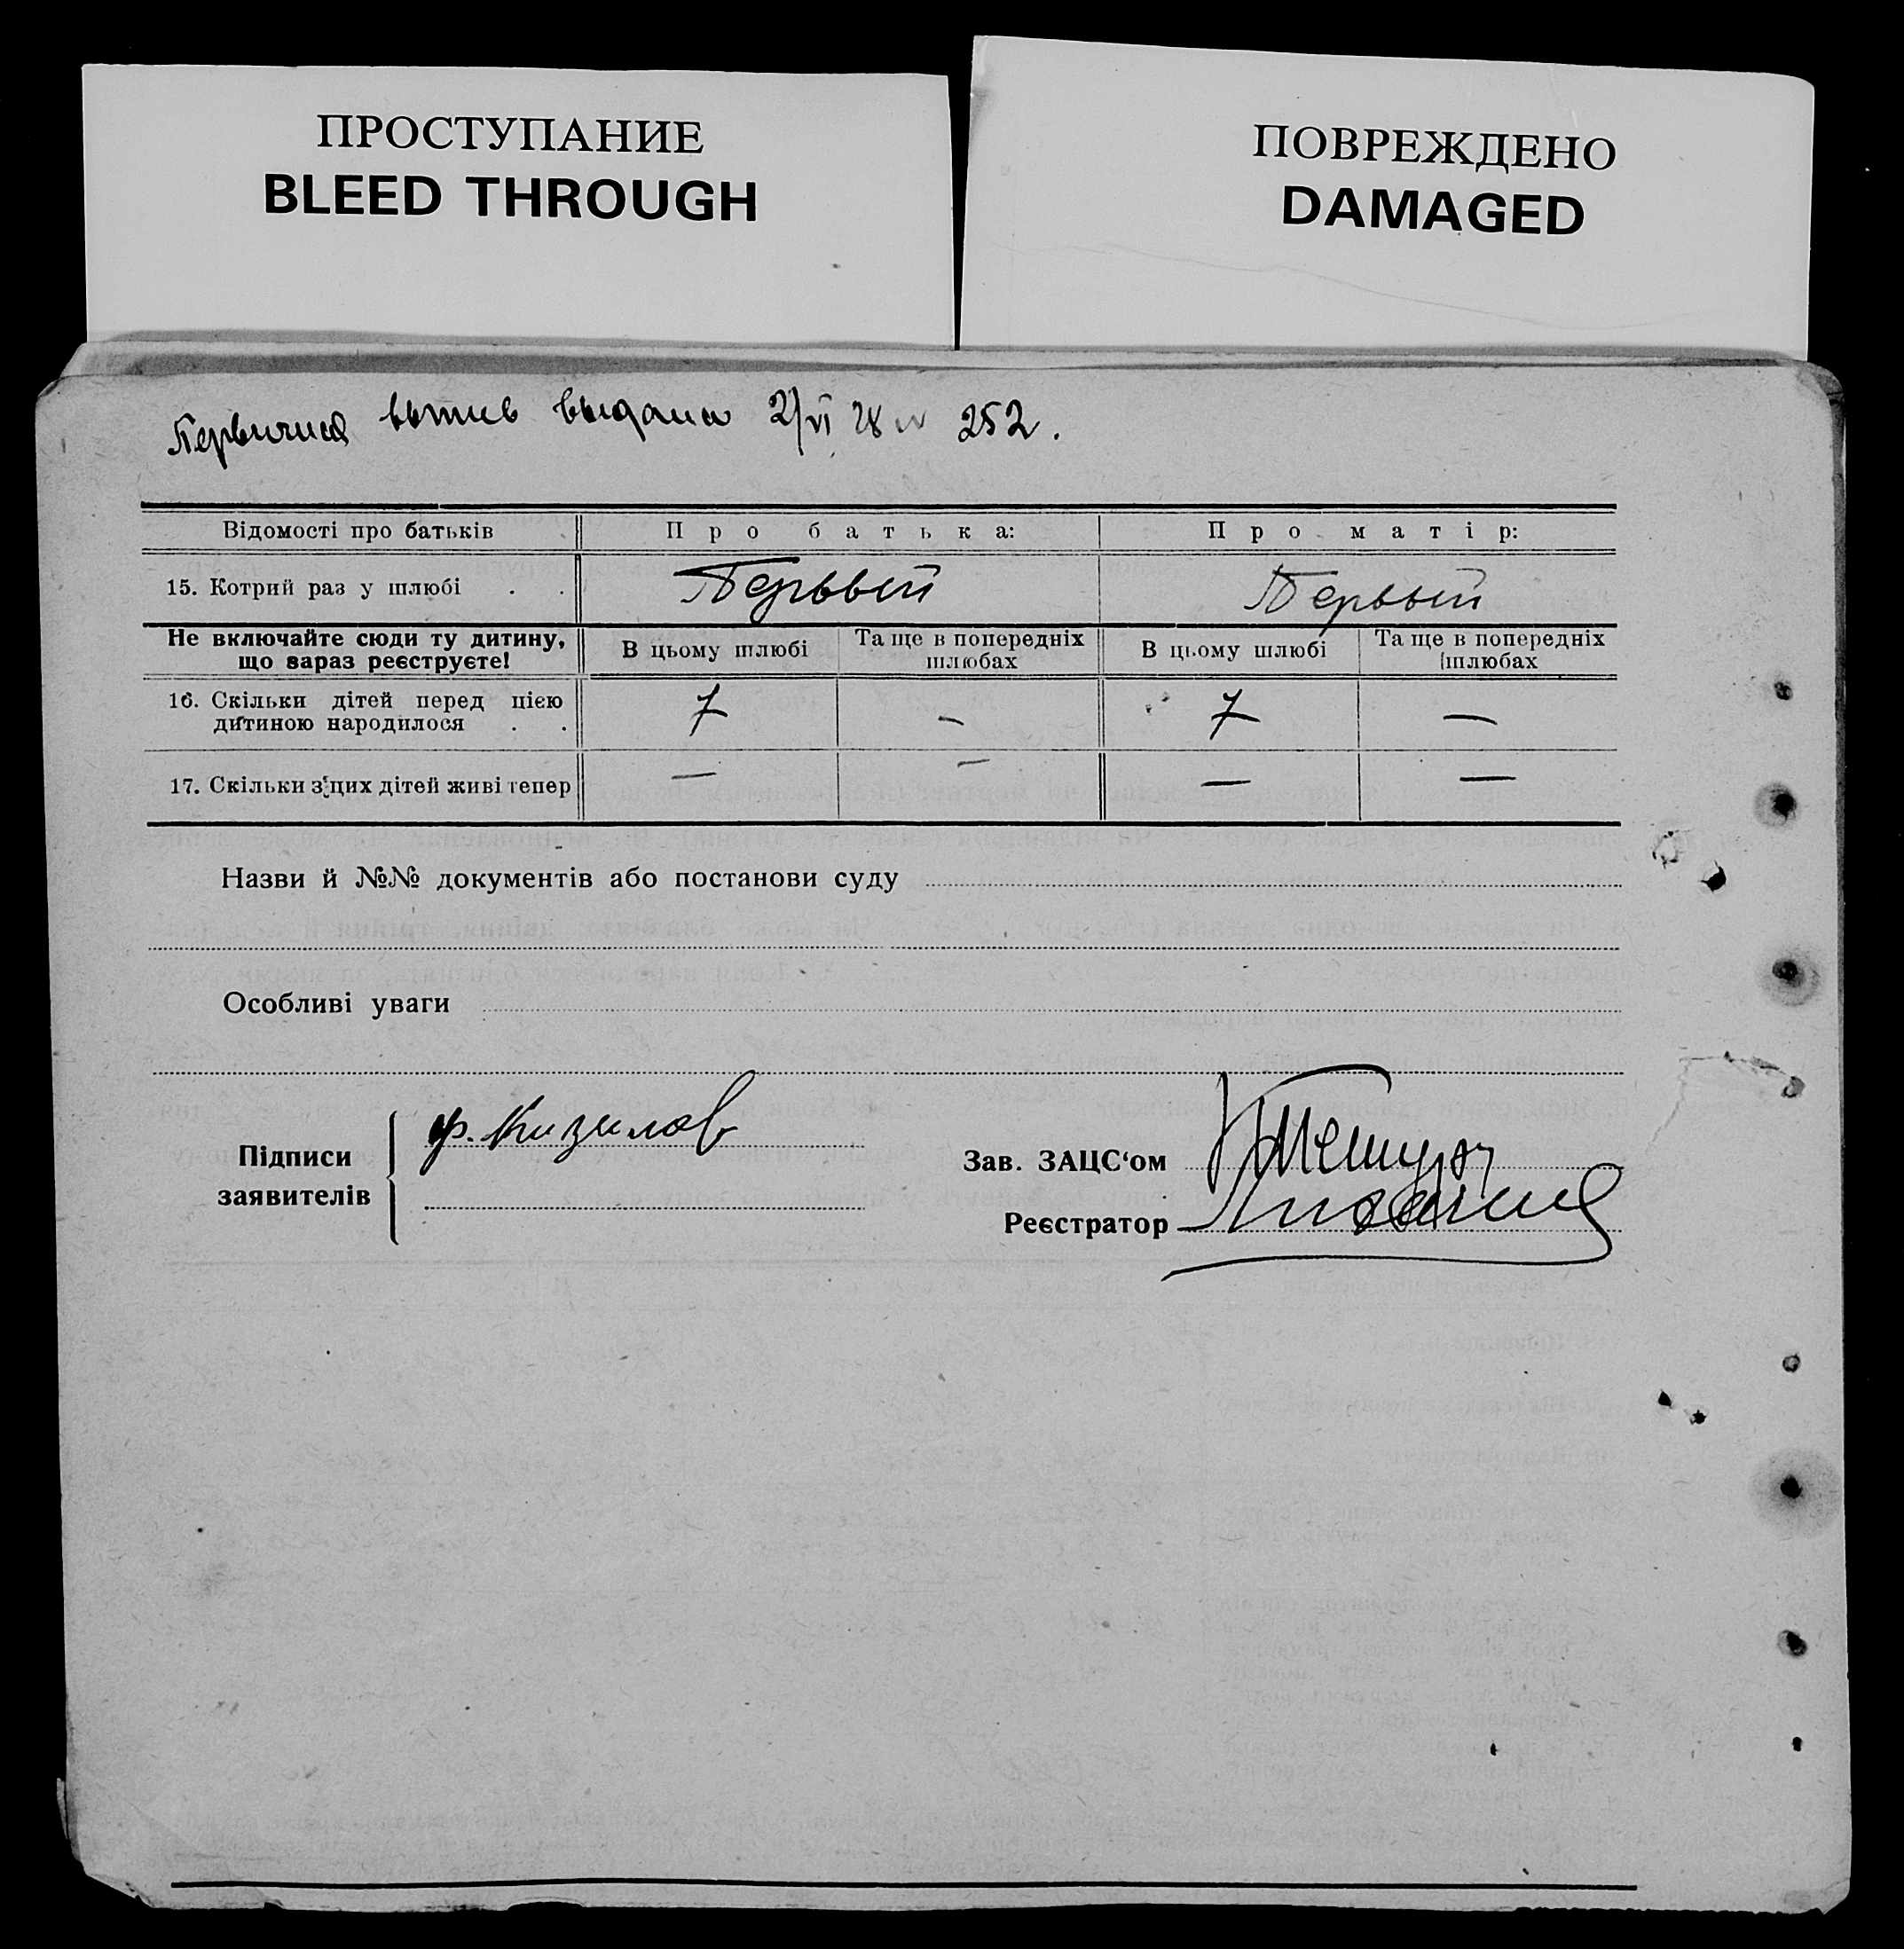 ПРОСТУПАНИЕ
BLEED THROUGH
ПОВРЕЖДЕНО
DAMAGED
выдана 2/VI 28 252.
Відомості про батьків Про батька: Про матір:
15. Котрий раз у шлюбі . . Первый Первый
Не включайте сюди ту дитину, що вараз реєструєте! В цьому шлюбі Та ще в попередніх шлюбах В цьому шлюбі Та ще в попередніх шлюбах
16. Скільки дітей перед цією
дитиною народилося . . 7 — 7 —
17. Скільки з цих дітей живі тепер — — — —
Назви й №№ документів або постанови суду
Особливі уваги
Підписи
заявителів
ф. Кизилов
Зав. ЗАЦС‘ом
Реєстратор